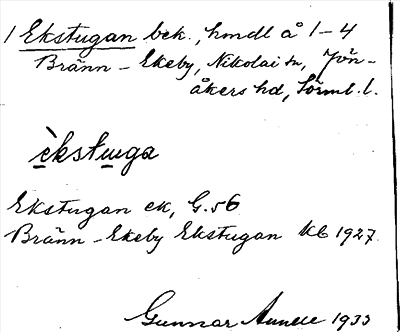 1 Ekstugan bek., hmdl å 1-4
Bränn-Ekeby, Nikolai sn, Jön-
åkers hd, Sörml. l.
èkstuga
Ekstugan ek, G.56
Bränn-Ekeby Ekstugan Kb 1927.
Gunnar 1933